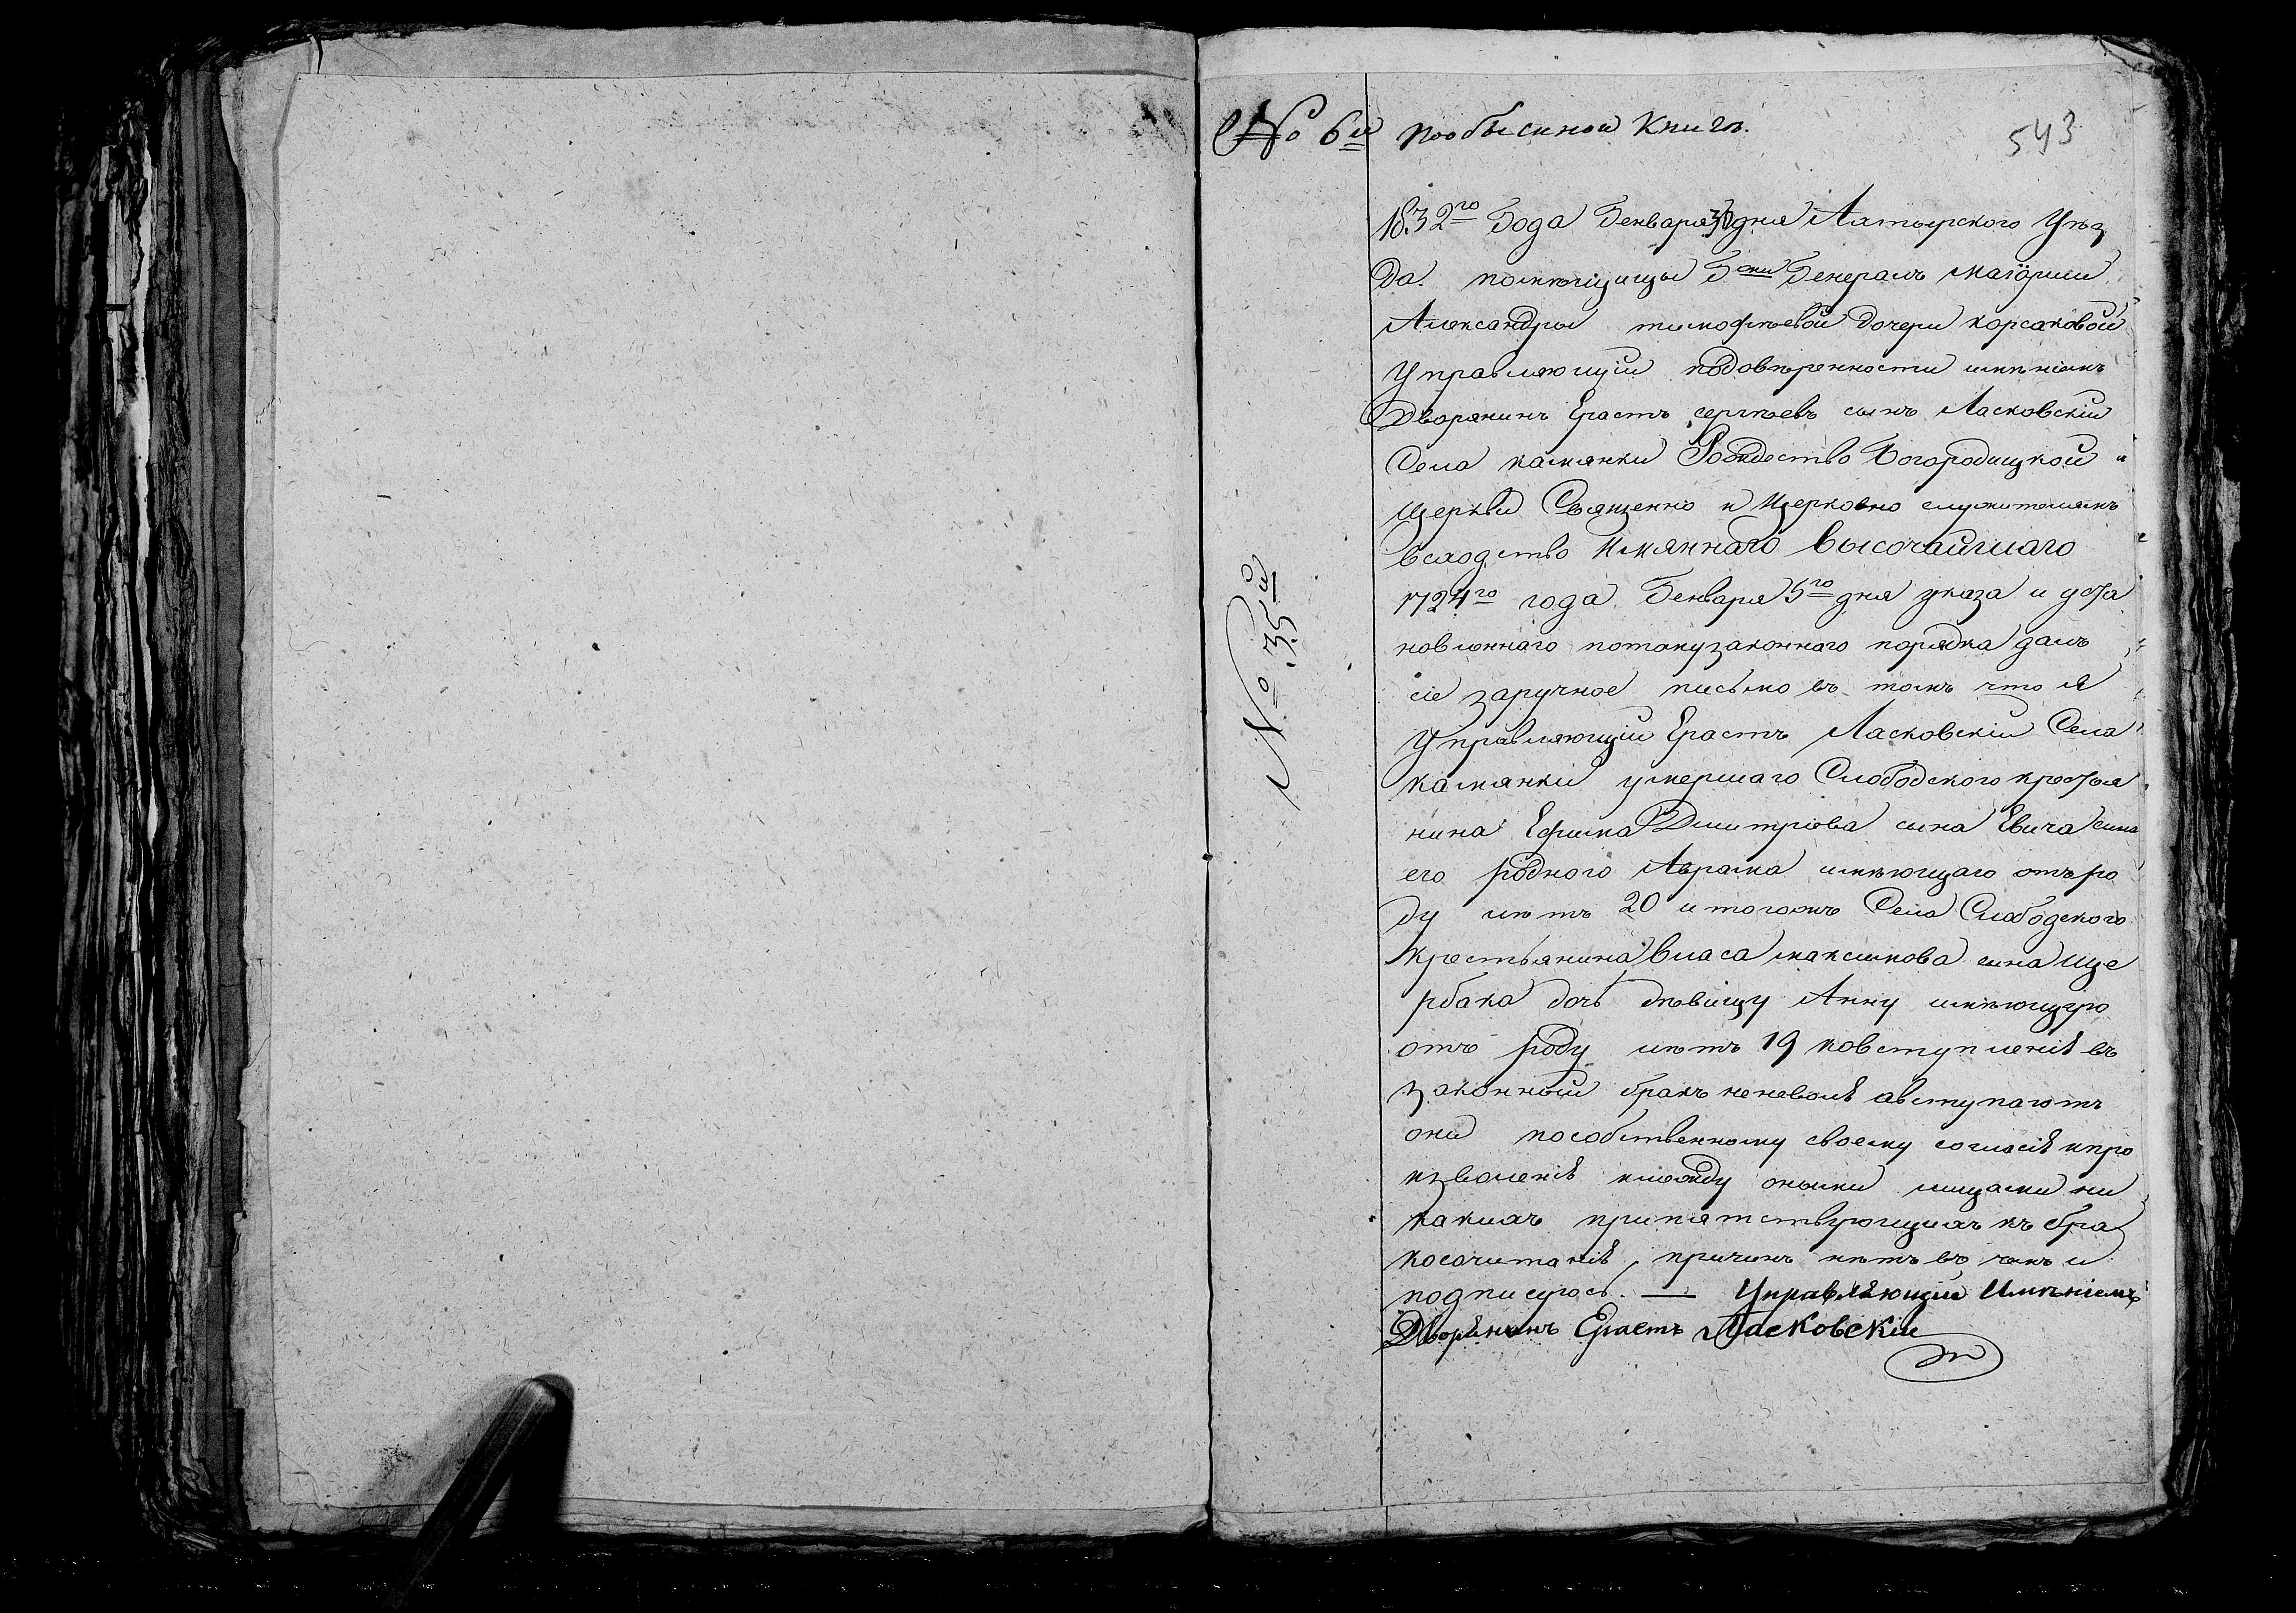 № 6й пообыскной Книгѣ.
543
1832го Года Генваря 30 дня Ахтырского Уѣз
да. помѣщицы Гжи Генералъ маіорши
Александры тимофѣевой дочери корсаковой
Управляющій подовѣренности имѣніемъ
Дворянинъ Ерастъ сергѣевъ сынъ Ласковскій
Села камянки Рождество Богородицкой
Церкви Священно и Церковно служителямъ
всходство Имяннаго Высочайшаго
1724го года Генваря 5го дня указа и уста
новленнаго потомузаконнаго порядка далъ
сіе заручное письмо въ томъ что я
Управляющій Ерастъ Ласковскій Села
камянки умершаго Слободского крестья
нина Ефима Дмитріева сына Евича сына
его родного Аврама имѣющаго отъро
ду лѣтъ 20 итогожъ Села Слободского
крестьянина власа максимова сына ще
рбака дочь дѣвицу Анну имѣющую
отъ роду лѣтъ 19 ковступленія въ
законный бракъ неневоля авступаютъ
они пособственному своему согласія ипро
изволенія имежду оными лицами ни
какихъ припятствующихъ къ бра
косочитанія причинъ нѣтъ въ чемъ и
подписуюсь. — Управляющій Имѣніемъ
Дворянинъ Ерастъ Ласковскій
№ 35й